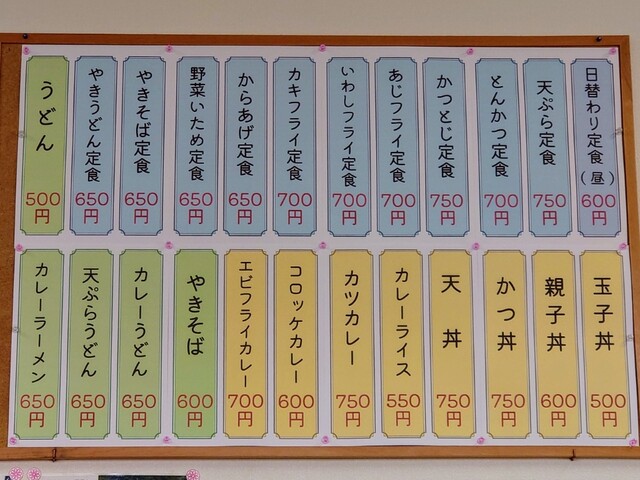 日替わり定食(昼)
600円
天ぷら定食
750円
とんかつ定食
700円
かつとじ定食
750円
あじフライ定食
700円
いわしフライ定食
700円
カキフライ定食
700円
からあげ定食
650円
野菜いため定食
650円
やきそば定食
650円
やきうどん定食
650円
うどん
500円
玉子丼
500円
親子丼
600円
かつ丼
750円
天丼
750円
カレーライス
550円
カツカレー
750円
コロッケカレー
600円
エビフライカレー
700円
やきそば
600円
カレーうどん
650円
天ぷらうどん
650円
カレーラーメン
650円